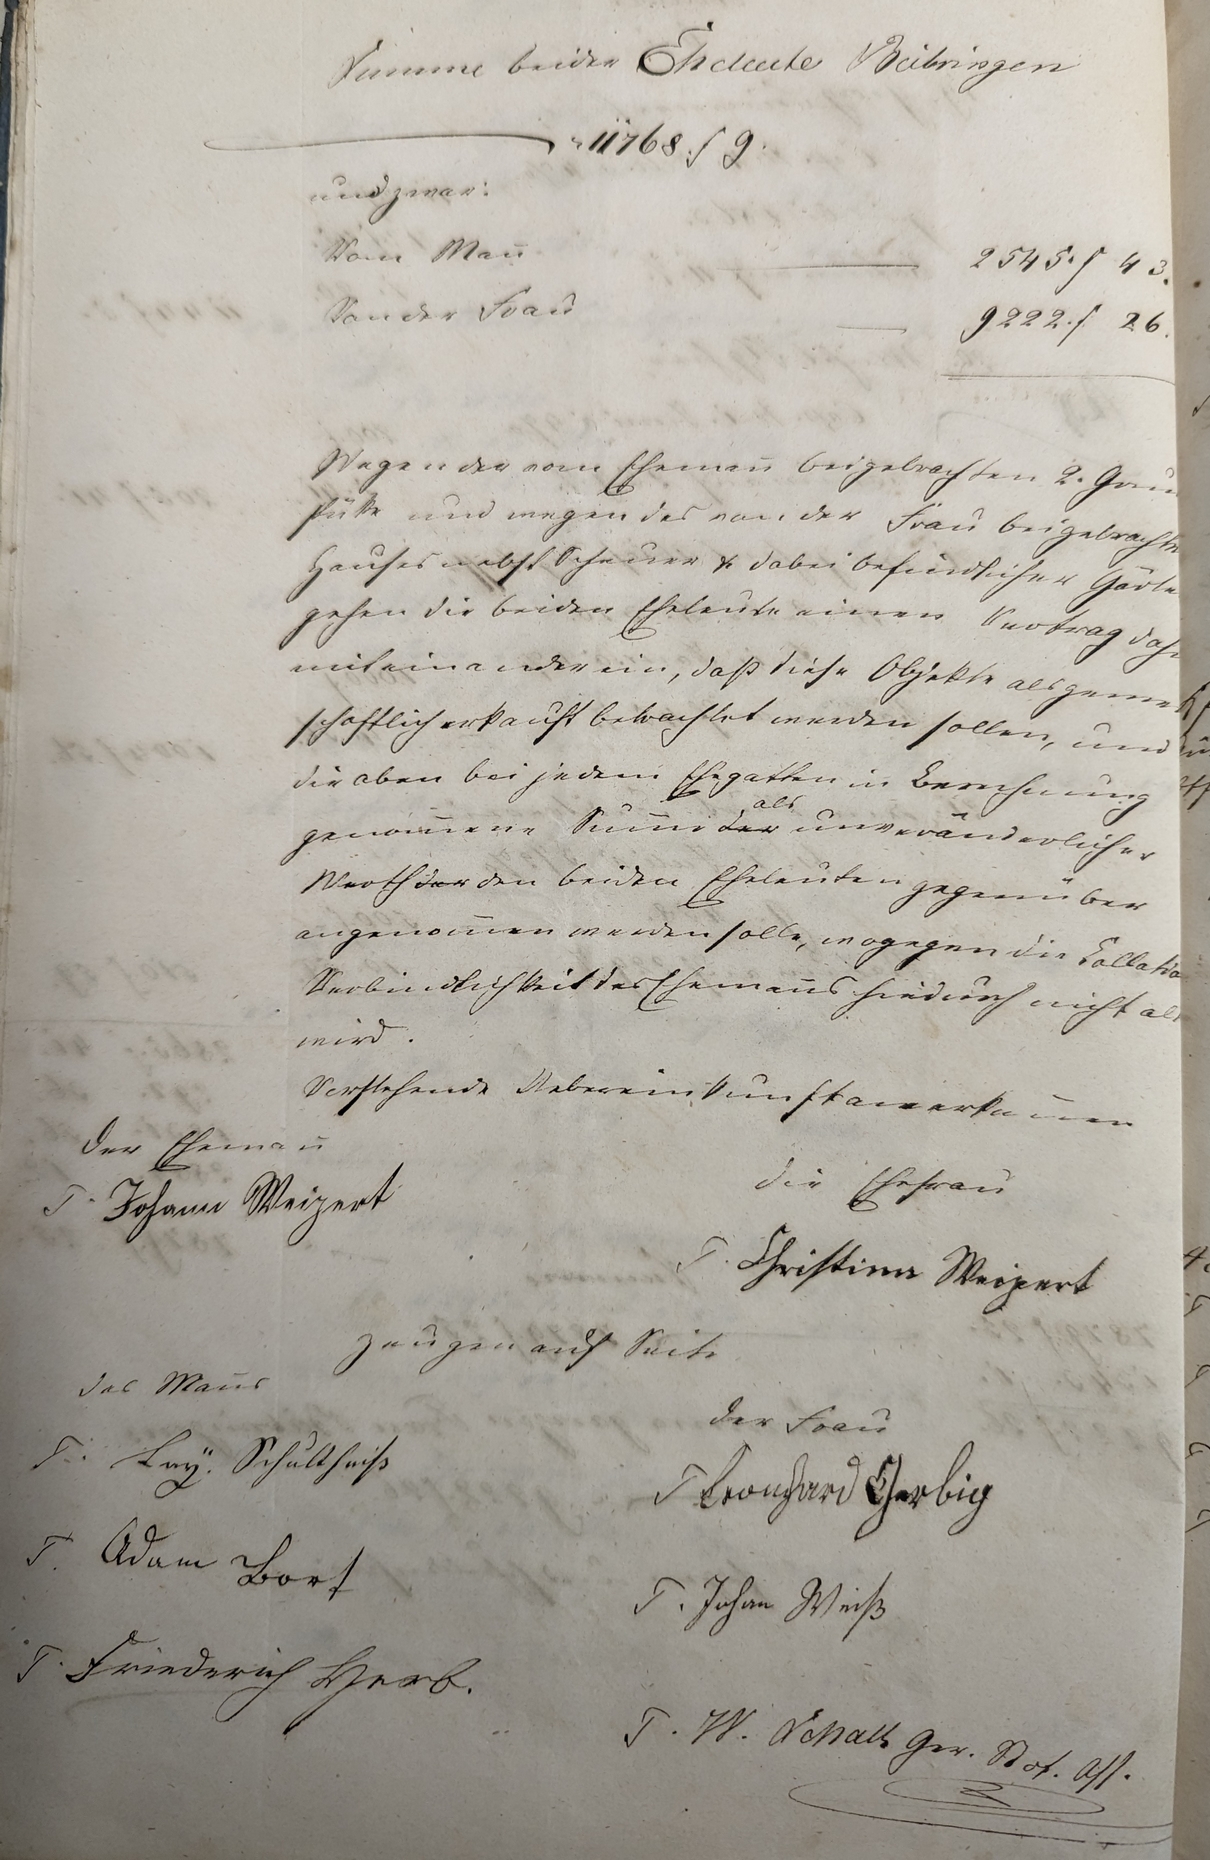 Summe beider Eheleute Beibringen
11768 f 9.
und zwar:
Vom Mañ 2545. f 43.
Von der Frau 9222. f 26.
Wegen der vom Ehemañ beigebrachten 2. Grun
stüke und wegen des von der Frau beigebrachte
Hauses nebst Scheuer & dabei befindlicher Gärte
gehen die beiden Eheleute einen Vertrag dah
miteinander ein, daß diese Objekte als gemei
schaftlich erkauft betrachtet werden sollen, und
die oben bei jedem Ehegatten in Berechnung
als
genom̄ene Sum̄e der unveränderlicher
Werth der den beiden Eheleuten gegenüber
angenom̄en werden solle, wogegen die Collatio
Verbindlichkeit des Ehemañs hiedurch nicht al
wird.
Vorstehende Uebereinkunft anerkeñen
der Ehemañ
T. Johann Weipert
die Ehefrau
T. Christina Weipert
Zeugen auf Seite
des Mañs
der Frau
T. Schultheiß
T Leonhard Gerbig
T. Adam Bort
T. Johan Weiß
T. Friederich Herb.
T. W. Schall Ger. Not. Ass.